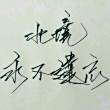 北境
永不遗忘